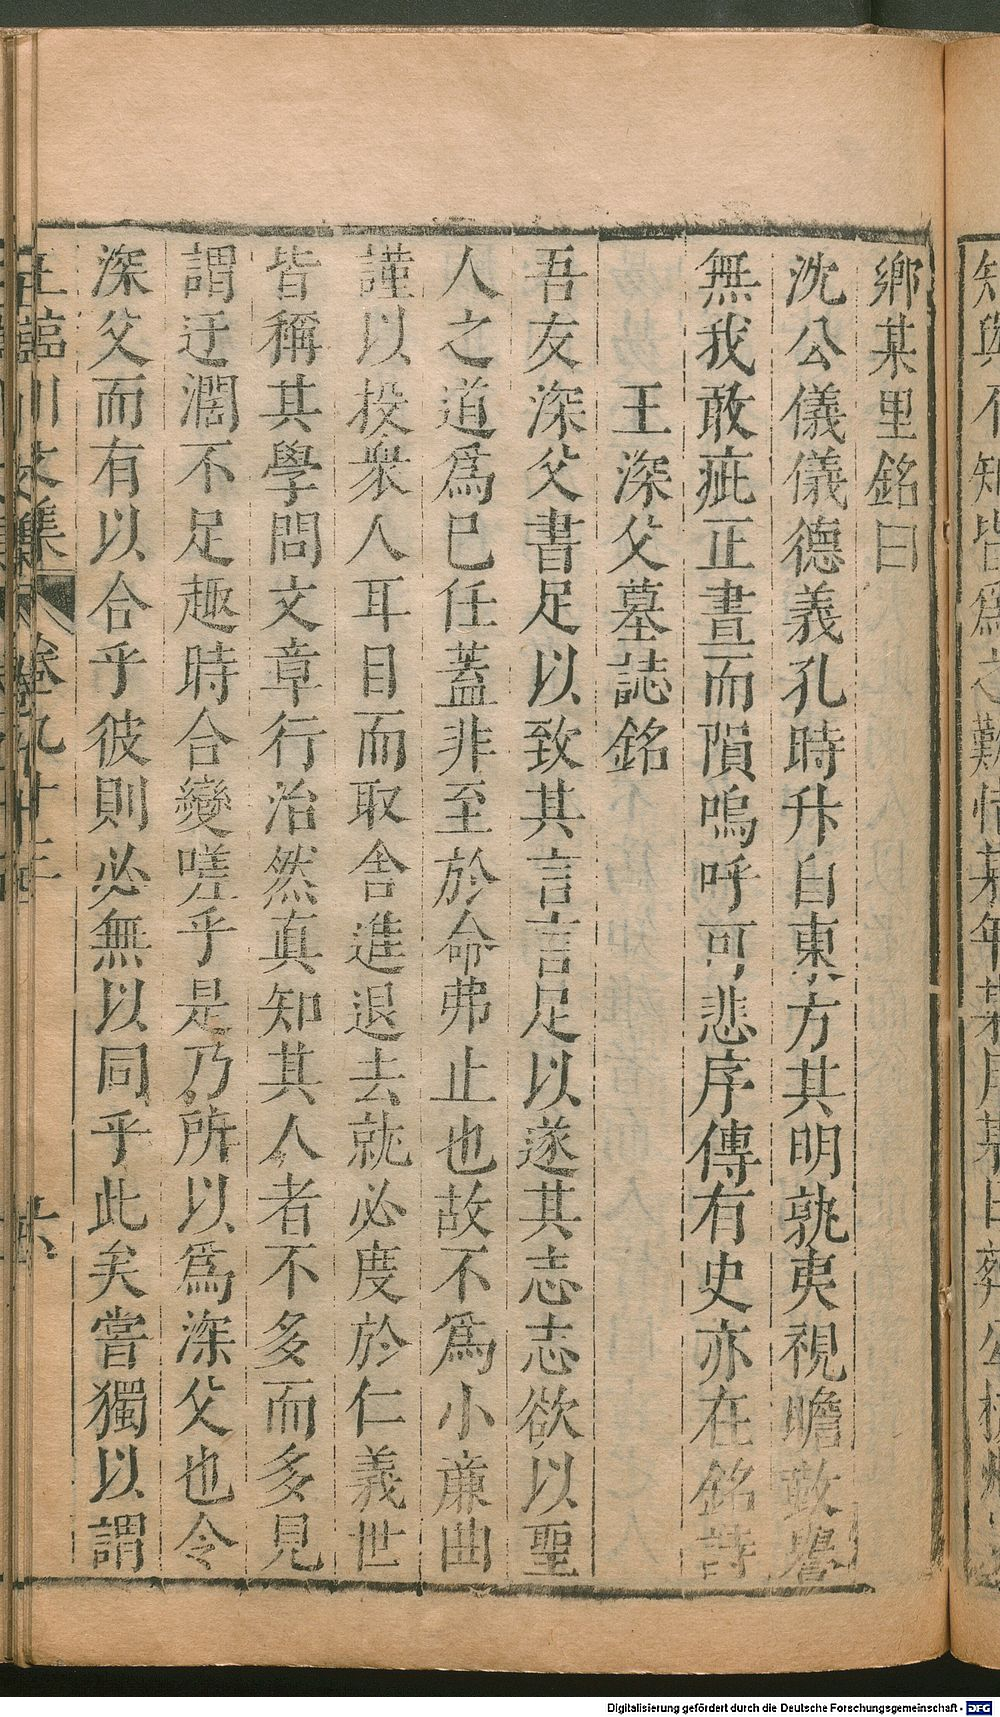 鄉某里銘曰
沈公儀儀德義孔時升自東方其明孰夷視瞻敢譽
無我敢疵正晝而隕嗚呼可悲序傳有史亦在銘詩
王深父墓誌銘
吾友深父書足以致其言言足以遂其志志欲以聖
人之道爲巳任蓋非至於命弗止也故不爲小廉曲
謹以投衆人耳目而取舍進退去就必度於仁義世
皆稱其學問文章行治然真知其人者不多而多見
謂迂濶不足趣時合變嗟乎是乃所以爲深父也令
深父而有以合乎彼則必無以同乎此矣嘗獨以謂
王臨川文集 卷九十三 十六
Digitalisierung gefördert durch die Deutsche Forschungsgemeinschaft - DFG